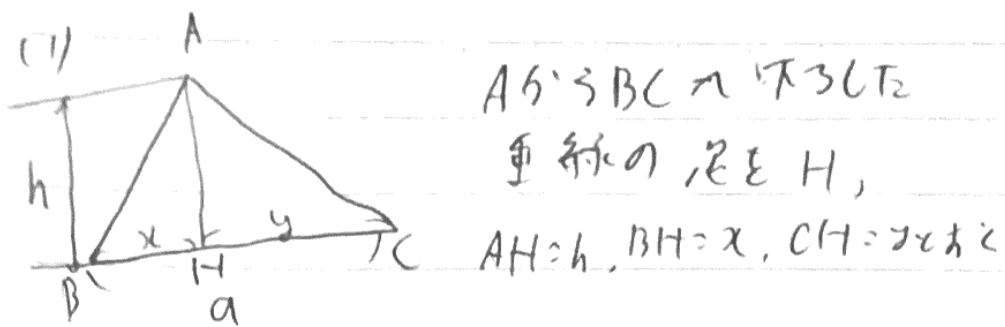 (1)
A
h
x
y
B
H
C
a
AからBCへ下ろした
垂線の足をH,
AH=h, BH=x, CH=yとおく